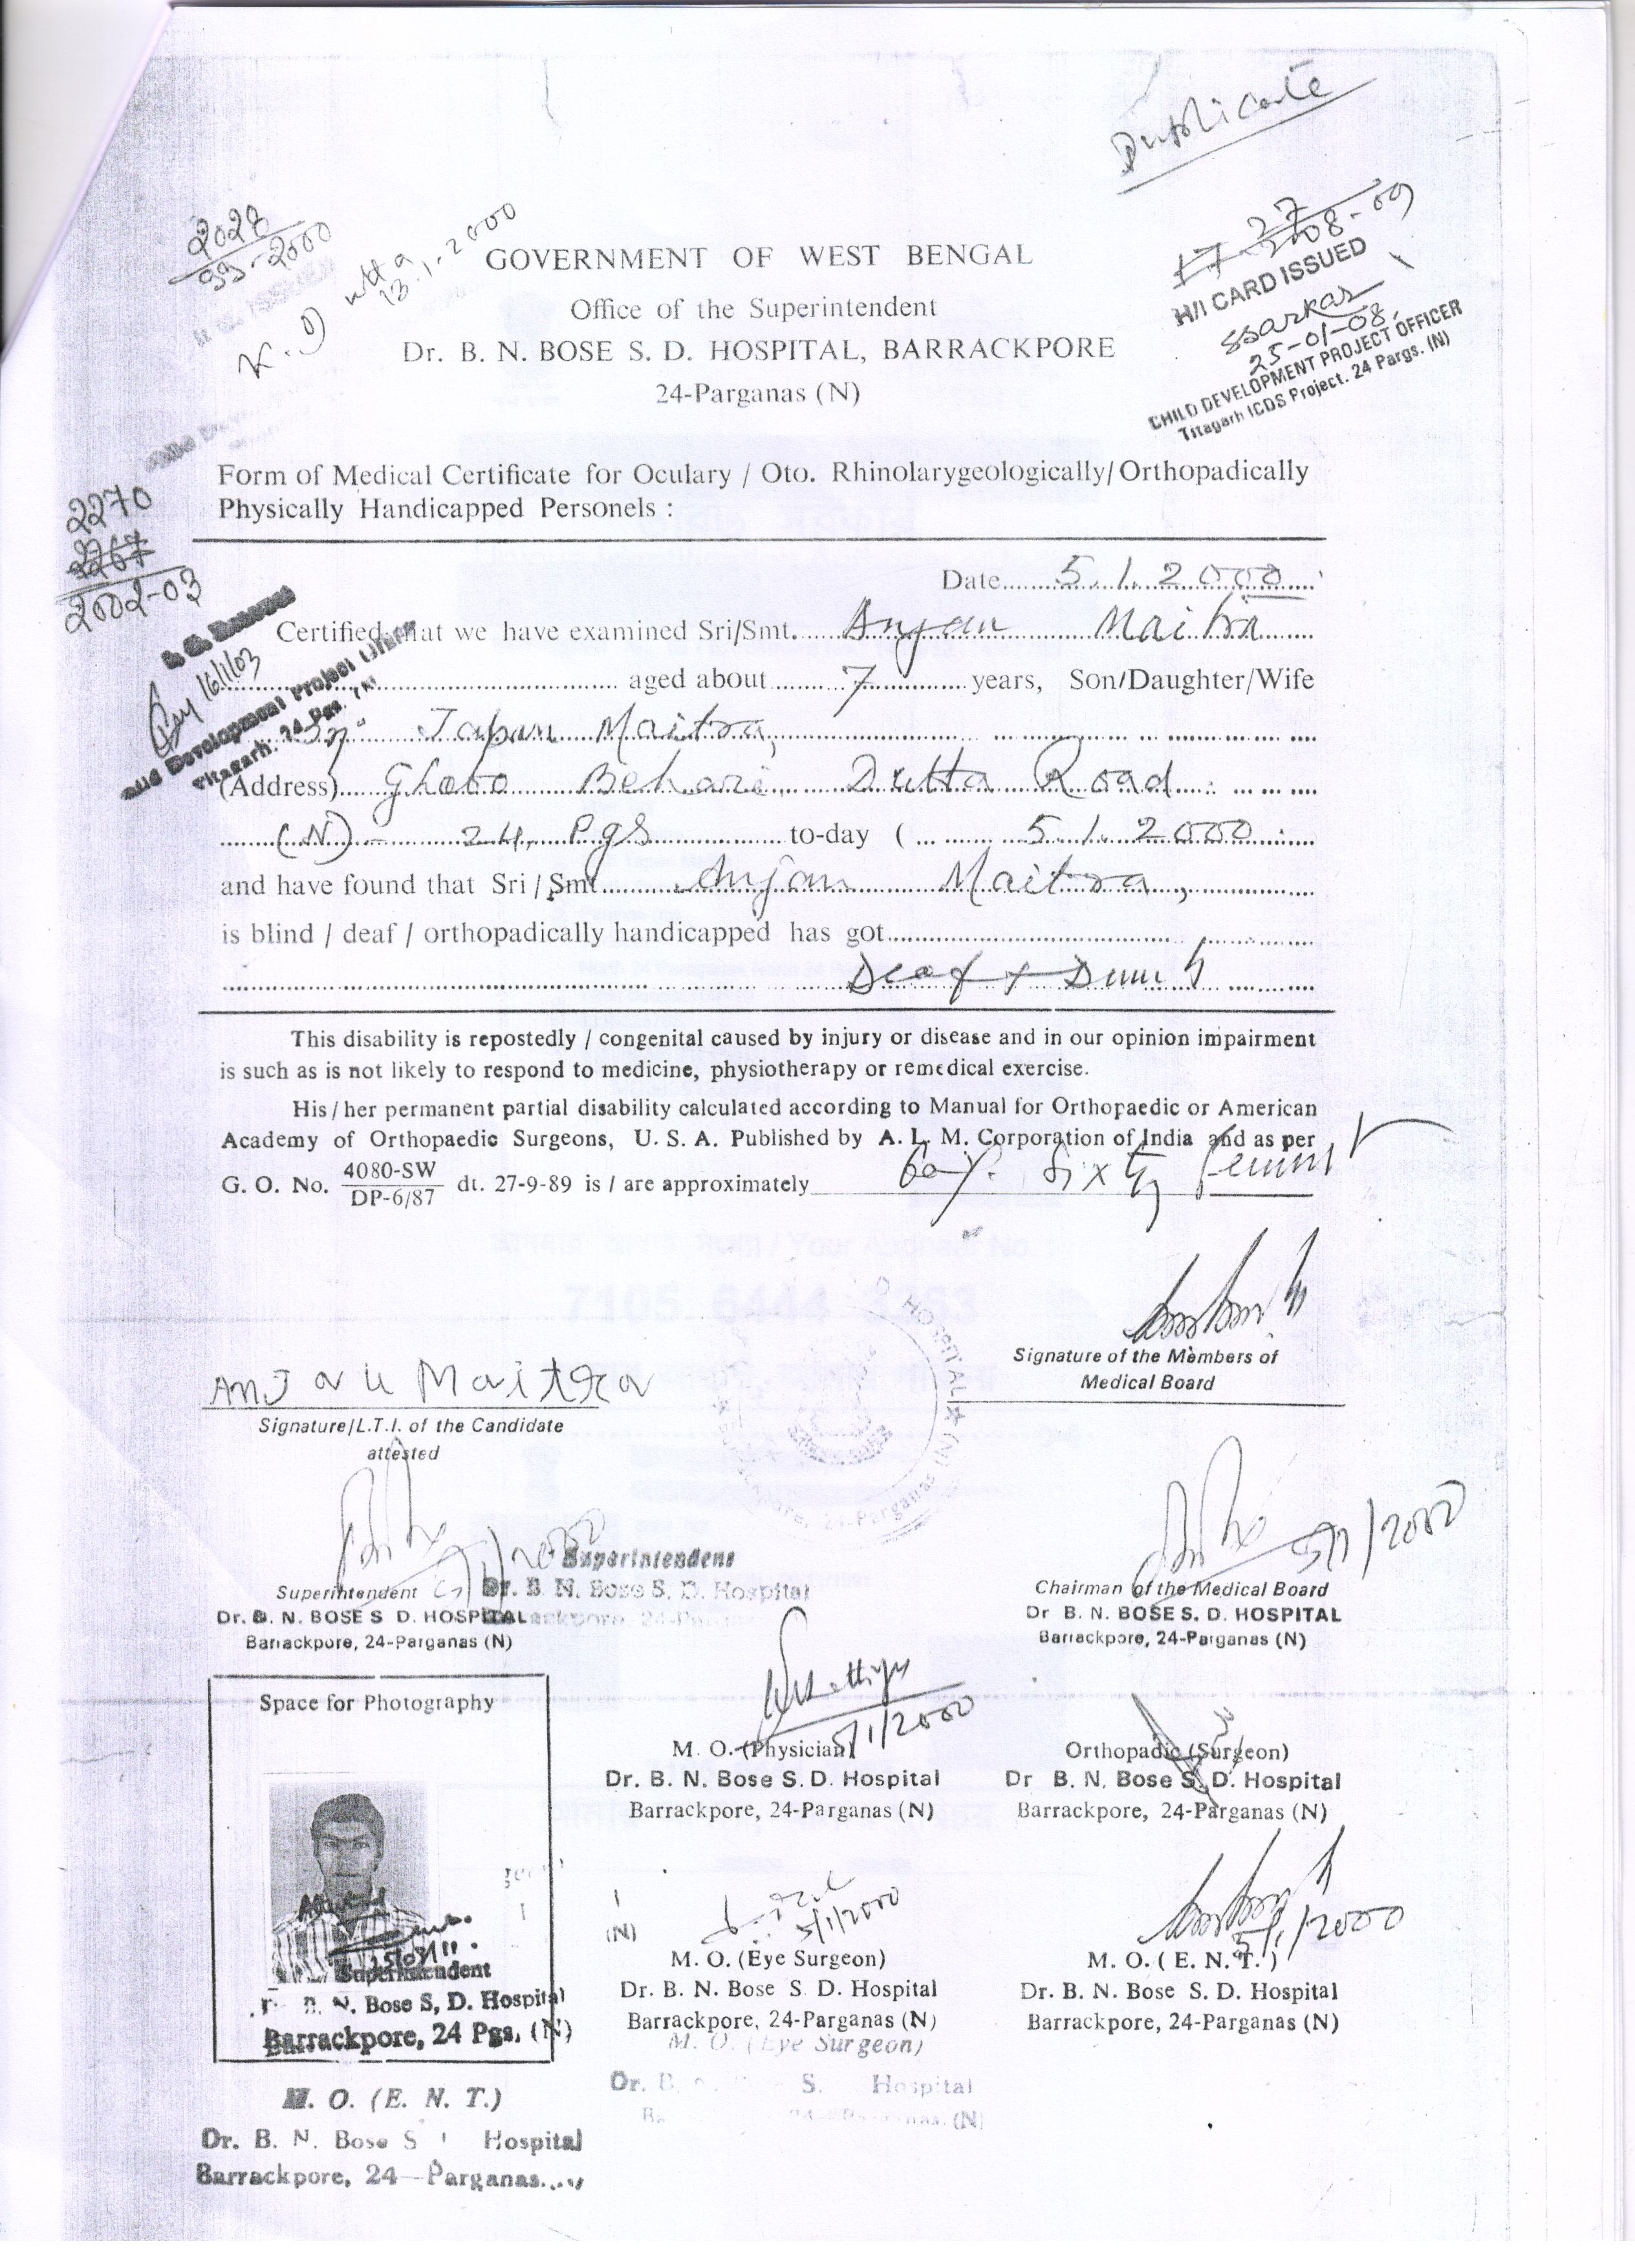 Duplicate
2028
99-2000
13.1-2000
27
17-2108-09
H/I CARD ISSUED
SSarkar
25-01-08
CHILD DEVELOPMENT PROJECT OFFICER
Titagarh ICDS Project. 24 Pargs. (N)
GOVERNMENT OF WEST BENGAL
Office of the Superintendent
Dr. B. N. BOSE S. D. HOSPITAL, BARRACKPORE
24-Parganas (N)
Form of Medical Certificate for Oculary / Oto. Rhinolarygeologically/Orthopadically
Physically Handicapped Personels :
2270
2267
2002-03
16/1/03
Development Project Officer
Titagarh. 24 Pgs. (N)
Date 5.1.2000
Certified that we have examined Sri/Smt. Anjan Maitra
aged about 7 years, Son/Daughter/Wife
Sri Tapan Maitra,
(Address) Ghoto Behari Dutta Road
(N) - 24 Pgs to-day ( 5.1.2000
and have found that Sri / Smt Anjan Maitra,
is blind / deaf / orthopadically handicapped has got
Deaf + Dumb
This disability is repostedly / congenital caused by injury or disease and in our opinion impairment
is such as is not likely to respond to medicine, physiotherapy or remedical exercise.
His/her permanent partial disability calculated according to Manual for Orthopaedic or American
Academy of Orthopaedic Surgeons, U. S. A. Published by A. L. M. Corporation of India and as per
G. O. No. 4080-SW
DP-6/87 dt. 27-9-89 is / are approximately 60%. Sixty Percent
Signature of the Members of
Medical Board
ANJan Maitra
Signature/L.T.I. of the Candidate
attested
HOSPITAL
24-Parganas (N)
5/1/2000
Superintendent
Dr. B. N. Bose S. D. Hospital
Superintendent
Dr. B. N. BOSE S D. HOSPITAL
Barrackpore, 24-Parganas (N)
5/1/2000
Chairman of the Medical Board
Dr B. N. BOSE S. D. HOSPITAL
Barrackpore, 24-Parganas (N)
Space for Photography
5/1/2000
M. O. (Physician)
Dr. B. N. Bose S. D. Hospital
Barrackpore, 24-Parganas (N)
Orthopadic (Surgeon)
Dr B. N. Bose S. D. Hospital
Barrackpore, 24-Parganas (N)
Attested
Superintendent
B. N. Bose S, D. Hospital
Barrackpore, 24 Pgs. (N)
(N)
5/1/2000
M. O. (Eye Surgeon)
Dr. B. N. Bose S. D. Hospital
Barrackpore, 24-Parganas (N)
M. O. (Eye Surgeon)
Dr. B. S. Hospital
(N)
5/1/2000
M. O. ( E. N. T. )
Dr. B. N. Bose S. D. Hospital
Barrackpore, 24-Parganas (N)
M. O. (E. N. T.)
Dr. B. N. Bose S Hospital
Barrackpore, 24—Parganas